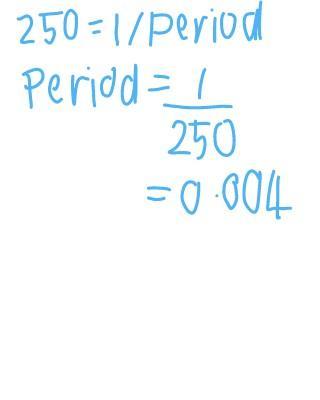 250 = 1/period
Period = 1/250
= 0.004